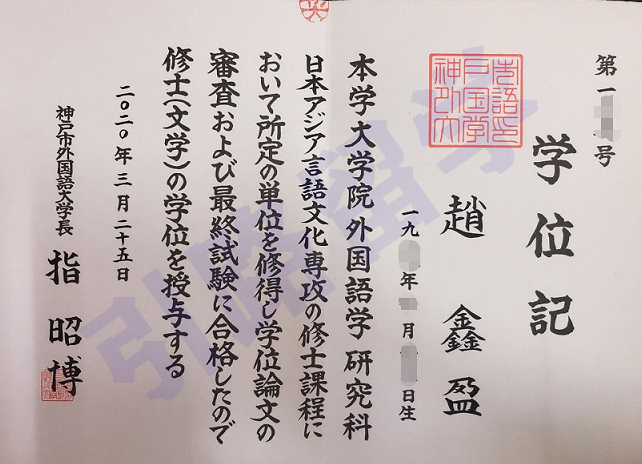 第一 号
学位記
趙 鑫盈
一九 年 月 日生
本学大学院外国語学研究科
日本アジア言語文化専攻の修士課程に
おいて所定の単位を修得し学位論文の
審査および最終試験に合格したので
修士(文学)の学位を授与する
二〇二〇年三月二十五日
神戸市外国語大学長
指 昭博
引路留学